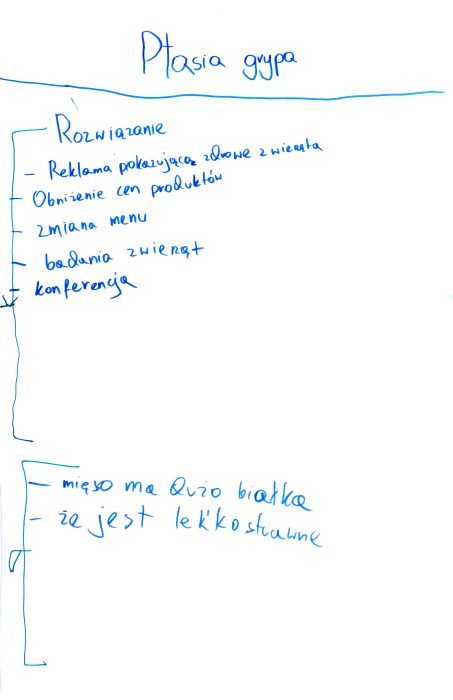 Ptasia grypa
Rozwiązanie
- Reklama pokazująca zdrowe zwierzęta
- Obniżenie cen produktów
- zmiana menu
- badania zwierząt
- konferencja
- mięso ma dużo białka
- że jest lekkostrawne